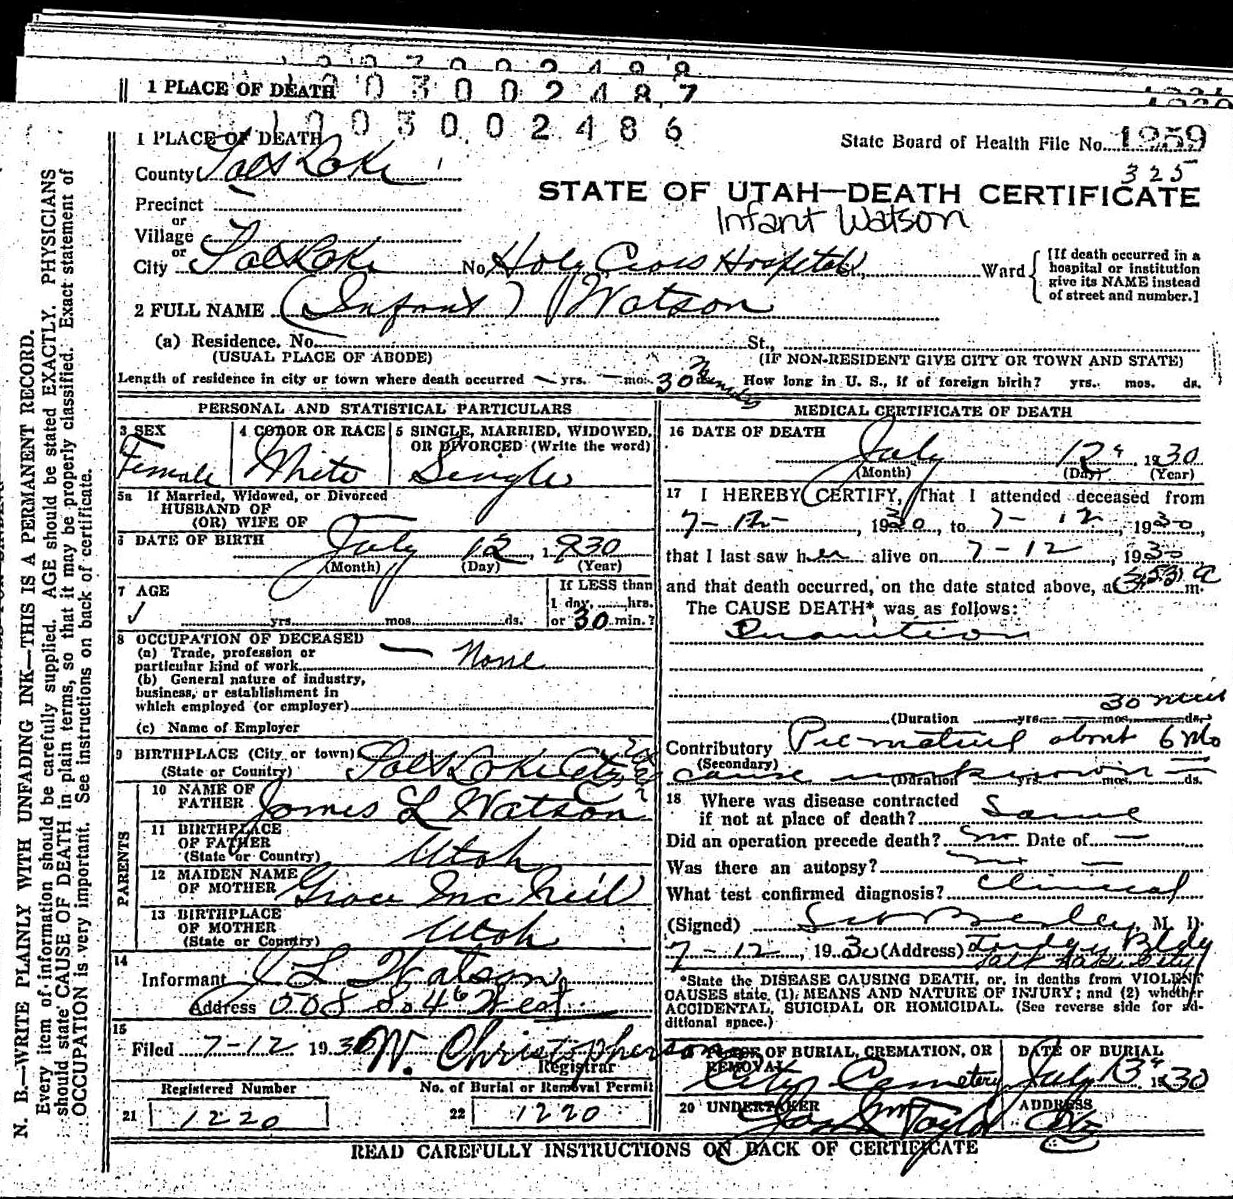 1 PLACE OF DEATH
1003002487
1003002486
1 PLACE OF DEATH
State Board of Health File No. 1259
325
County Salt Lake
STATE OF UTAH—DEATH CERTIFICATE
Infant Watson
Precinct
or
Village
or
City Salt Lake No. Holy Cross Hospital, Ward
[If death occurred in a hospital or institution give its NAME instead of street and number.]
2 FULL NAME (Infant) Watson
(a) Residence. No. St.,
(USUAL PLACE OF ABODE) (IF NON-RESIDENT GIVE CITY OR TOWN AND STATE)
Length of residence in city or town where death occurred — yrs. — mo. 30 How long in U. S., if of foreign birth? yrs. mos. ds.
PERSONAL AND STATISTICAL PARTICULARS
3 SEX 4 COLOR OR RACE 5 SINGLE, MARRIED, WIDOWED, OR DIVORCED (Write the word)
Female White Single
5a If Married, Widowed, or Divorced
HUSBAND OF
(OR) WIFE OF
6 DATE OF BIRTH July 12, 1930
(Month) (Day) (Year)
7 AGE If LESS than
1 day, hrs.
yrs. mos. ds. or 30 min.?
8 OCCUPATION OF DECEASED
(a) Trade, profession or
particular kind of work — None
(b) General nature of industry,
business, or establishment in
which employed (or employer)
(c) Name of Employer
9 BIRTHPLACE (City or town) Salt Lake City
(State or Country)
PARENTS
10 NAME OF FATHER James L Watson
11 BIRTHPLACE OF FATHER
(State or Country) Utah
12 MAIDEN NAME OF MOTHER Grace McNeil
13 BIRTHPLACE OF MOTHER
(State or Country) Utah
14
Informant J L Watson
Address So 4th West
15
Filed 7-12 1930 W. Christopherson
Registrar
Registered Number No. of Burial or Removal Permit
21 1220 22 1220
MEDICAL CERTIFICATE OF DEATH
16 DATE OF DEATH
July 12" 1930
(Month) (Day) (Year)
17 I HEREBY CERTIFY, That I attended deceased from
7-12-, 1930, to 7-12, 1930,
that I last saw her alive on 7-12, 1930
and that death occurred, on the date stated above, at 3:53 A m.
The CAUSE DEATH* was as follows:
Inanition
30 min
(Duration yrs. mos. ds.
Contributory Premature about 6 Mo
(Secondary)
cause unknown (Duration yrs. mos. ds.
18 Where was disease contracted
if not at place of death? Same
Did an operation precede death? no Date of —
Was there an autopsy? no —
What test confirmed diagnosis? Clinical
(Signed) M. D.
7-12, 1930 (Address) Judge Bldg
Salt Lake City
*State the DISEASE CAUSING DEATH, or, in deaths from VIOLENT
CAUSES state (1) MEANS AND NATURE OF INJURY; and (2) whether
ACCIDENTAL, SUICIDAL OR HOMICIDAL. (See reverse side for ad-
ditional space.)
19 PLACE OF BURIAL, CREMATION, OR REMOVAL DATE OF BURIAL
City Cemetery July 13" 1930
20 UNDERTAKER ADDRESS
Taylor City
READ CAREFULLY INSTRUCTIONS ON BACK OF CERTIFICATE
N. B.—WRITE PLAINLY WITH UNFADING INK—THIS IS A PERMANENT RECORD.
Every item of information should be carefully supplied. AGE should be stated EXACTLY. PHYSICIANS
should state CAUSE OF DEATH in plain terms, so that it may be properly classified. Exact statement of
OCCUPATION is very important. See instructions on back of certificate.